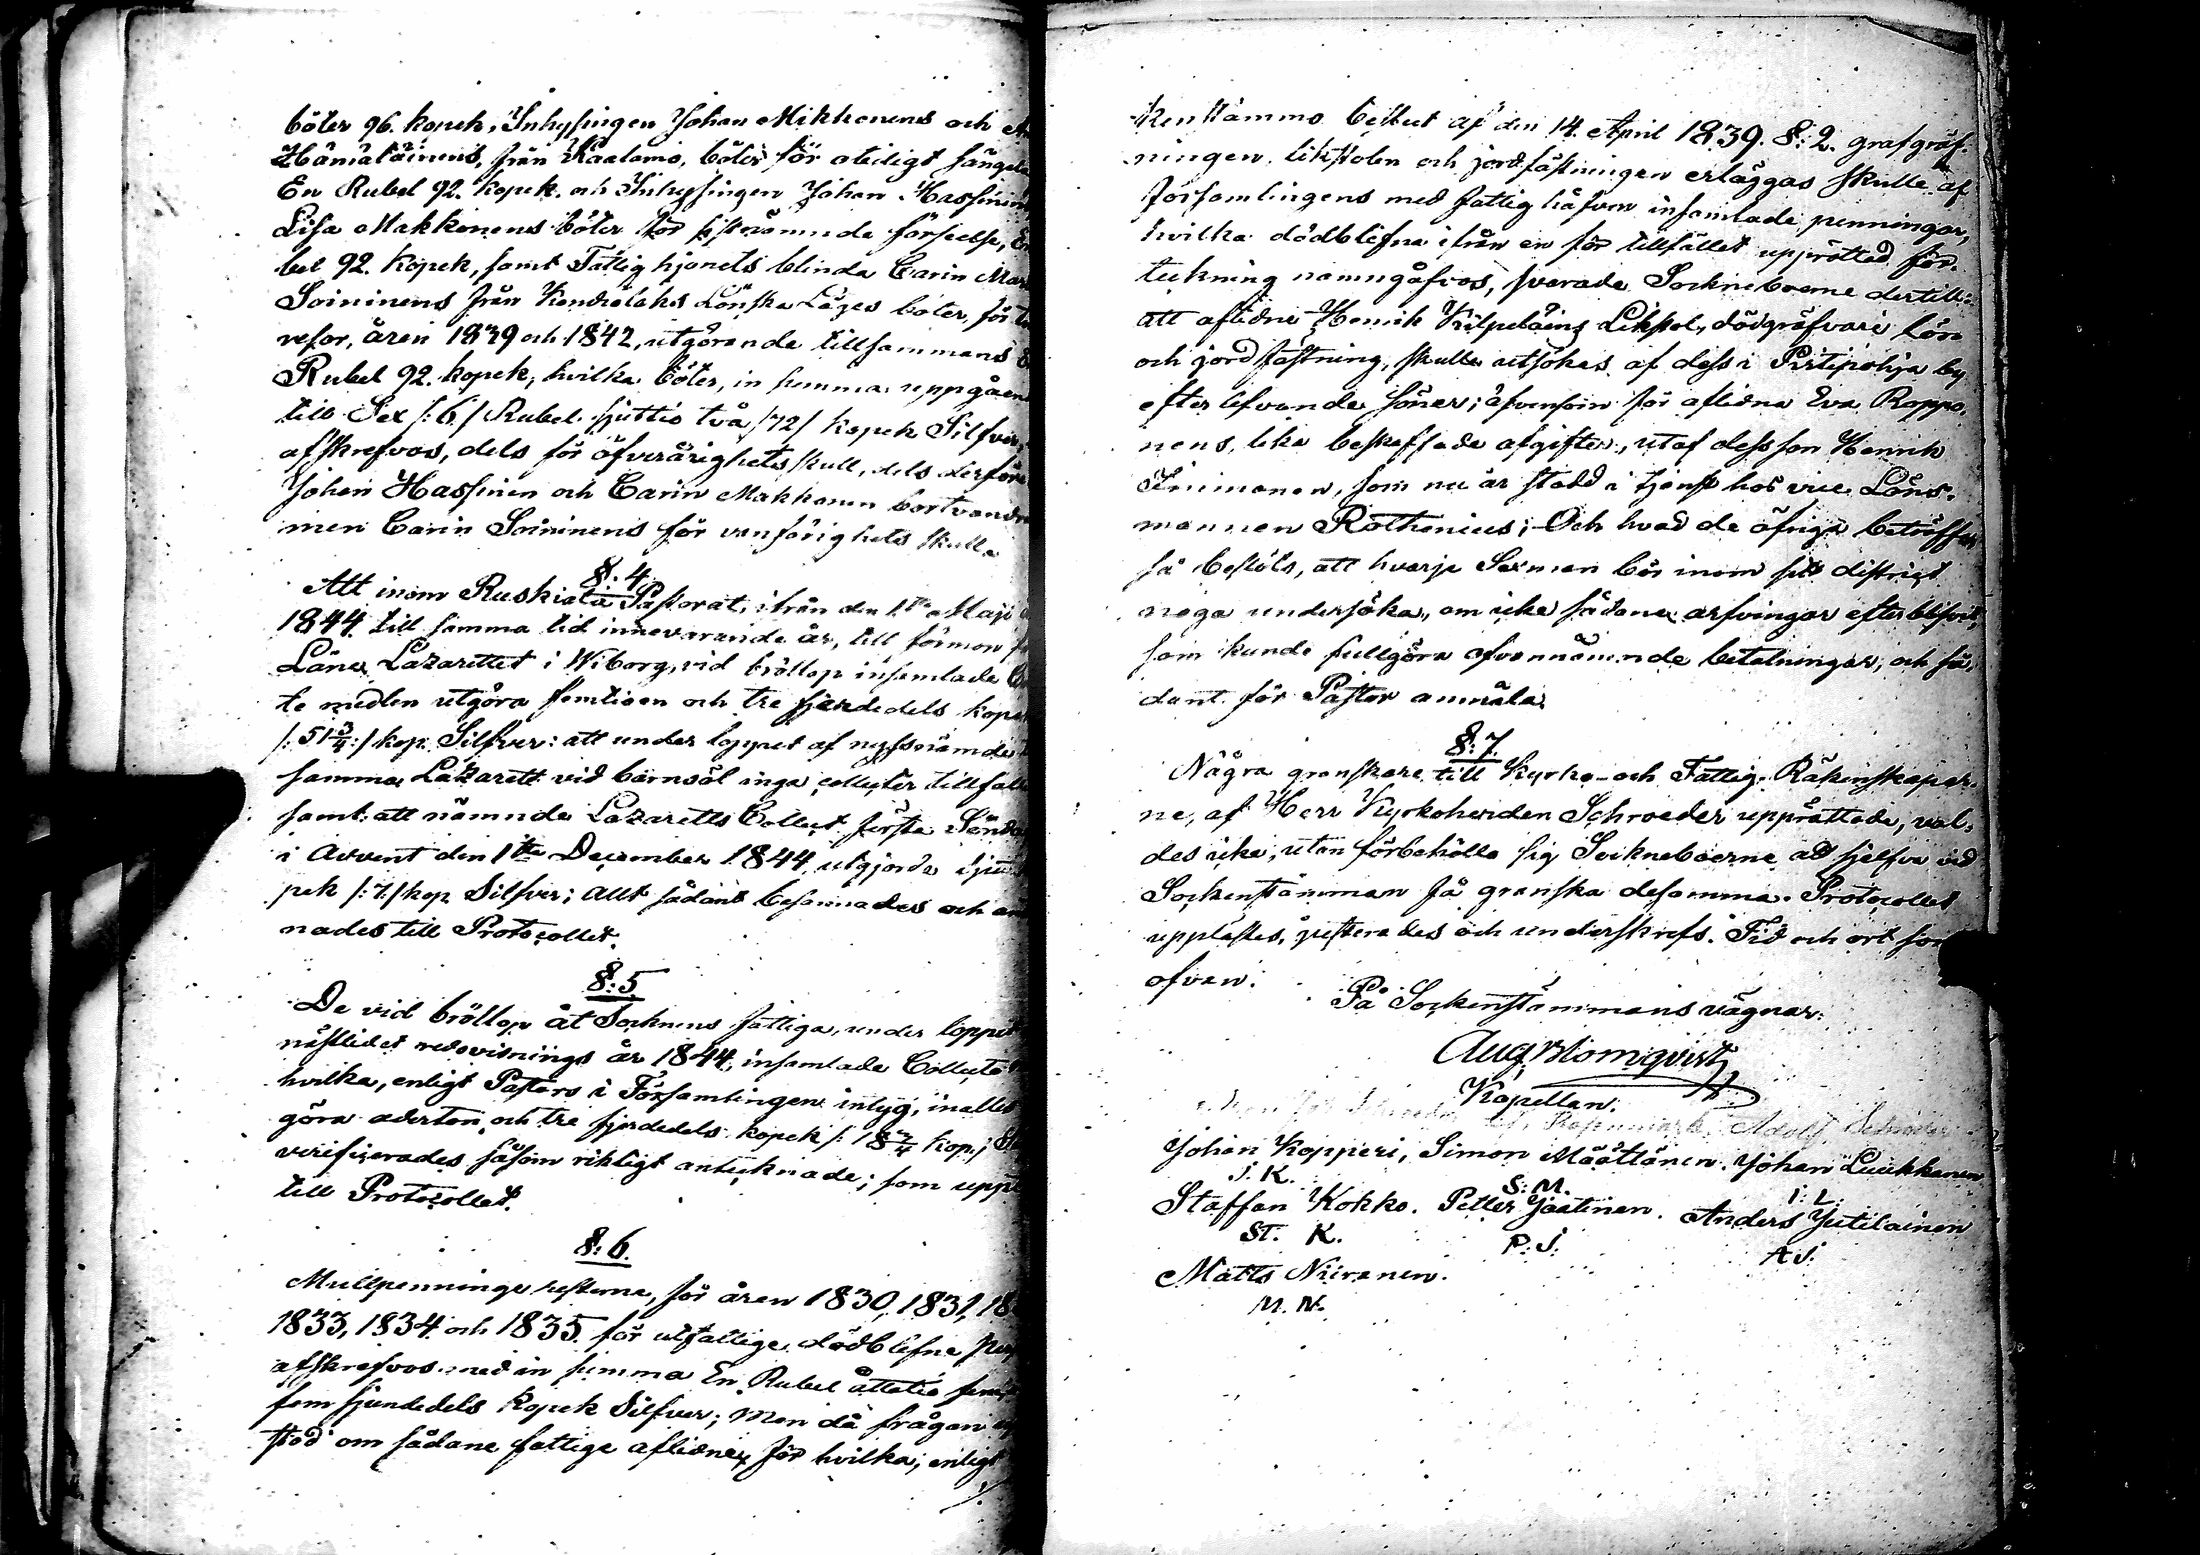 böter 96. kopek, Inhysingen Johan Mikkonens och
Hämäläinens, från Kaalamo, böter för otidigt sängela
En Rubel 92. kopek. och Inhysingen Johan Hassinen
Lisa Makkonens böter för sistnämnde förseelse, En
bel 92. kopek, samt Fattighjonets blinda Carin Mar
Soininens från Kendrelaks Lönska Läges böter, för
resor, åren 1839 och 1842, utgörande tillsammans
Rubel 92. kopek; hvilka böter, in summa uppgåen
till Sex /:6/ Rubel sjuttio två /72/ kopek Silfver,
afskrefvos, dels för öfverårighets skull, dels derföre
Johan Hassinen och Carin Makkonen bortvandra
men Carin Soininens för vanförighets skull.
§. 4.
Att inom Ruskiala Pastorat, ifrån den 1sta Maji
1844. till samma tid innevarande år, till förmon
Läne Lazarettet i Wiborg, vid bröllop insamlade
te medlen utgöra femtioen och tre fjerdedels kop
/:51 3/4:/ kop. Silfver: att under loppet af nyssnämde
samma Lazarett vid barnsöl inga collecter tillfall
samt att nämnde Lazaretts Collect förste Sönda
i Advent den 1sta December 1844, utgjorde sju
pek /:7:/ kop Silfver; Allt sådant besannades och an
nades till Protocollet.
§: 5
De vid bröllop åt Socknens fattiga, under loppet
nästlidet redovisnings år 1844, insamlade Collecte
hvilka, enligt Pastors i Församlingen intyg, inalles
göra aderton och tre fjerdedels kopek /: 18 3/4 kop:/
verifierades såsom riktigt antecknade; som uppt
till Protocollet.
§: 6.
Mullpenninge resterne, för åren 1830, 1831, 18
1833, 1834 och 1835 för utfattige dödblefne
afskrefvos med in summa En Rubel åttatio fem
fem sjundedels Kopek Silfver; Men då frågan
stod om sådane fattige aflidne, för hvilka, enligt
kenstämmo beslut af den 14. April 1839. §: 2. grafgräf-
ningen, likstolen och jordfästningen erläggas skulle af
församlingens med fattighåfven insamlade penningar,
hvilka dödblefna ifrån en för tillfället upprättad för-
teckning namngåfvos, svarade Sockneboerne dertill:
att aflidne Henrik Kilpeläins Likstol, dödgräfvare lön
och jordfästning, skulle utsökas af dess i Pirtipohja by
efterlefvande söner; äfvensom för aflidna Eva Roppo-
nens, lika beskaffade afgifter, utaf dess son Henrik
Immonen, som nu är stadd i tjenst hos vice Läns-
mannen Rothenius; Och hvad de öfriga beträffar
så beslöts, att hvarje Sexman bör inom sitt district
noga undersöka, om icke sådane arfvingar efterblifvit,
som kunde fullgöra ofvannämnde betalningar, och så-
dant för Pastor anmäla.
§: 7.
Några granskare till Kyrko- och Fattig-Räkenskaper-
ne, af Herr Kyrkoherden Schroeder upprättade, val-
des icke, utan förbehöllo sig Sockneboerne att sjelfve vid
Sockenstämman få granska desamma. Protocollet
upplästes, justerades och underskrefs. Tid och ort som
ofvan.
På Sockenstämmans vägnar:
Aug Blomqvist
Kapellan.
Adolf Schröder
Johan Kopperi, Simon Määttänen. Johan Luukkanen
J. K. S: M. J: L
Staffan Kokko. Petter Jaatinen. Anders Jutilainen
ST. K. P: J. A J.
Matts Niiranen.
M. N.